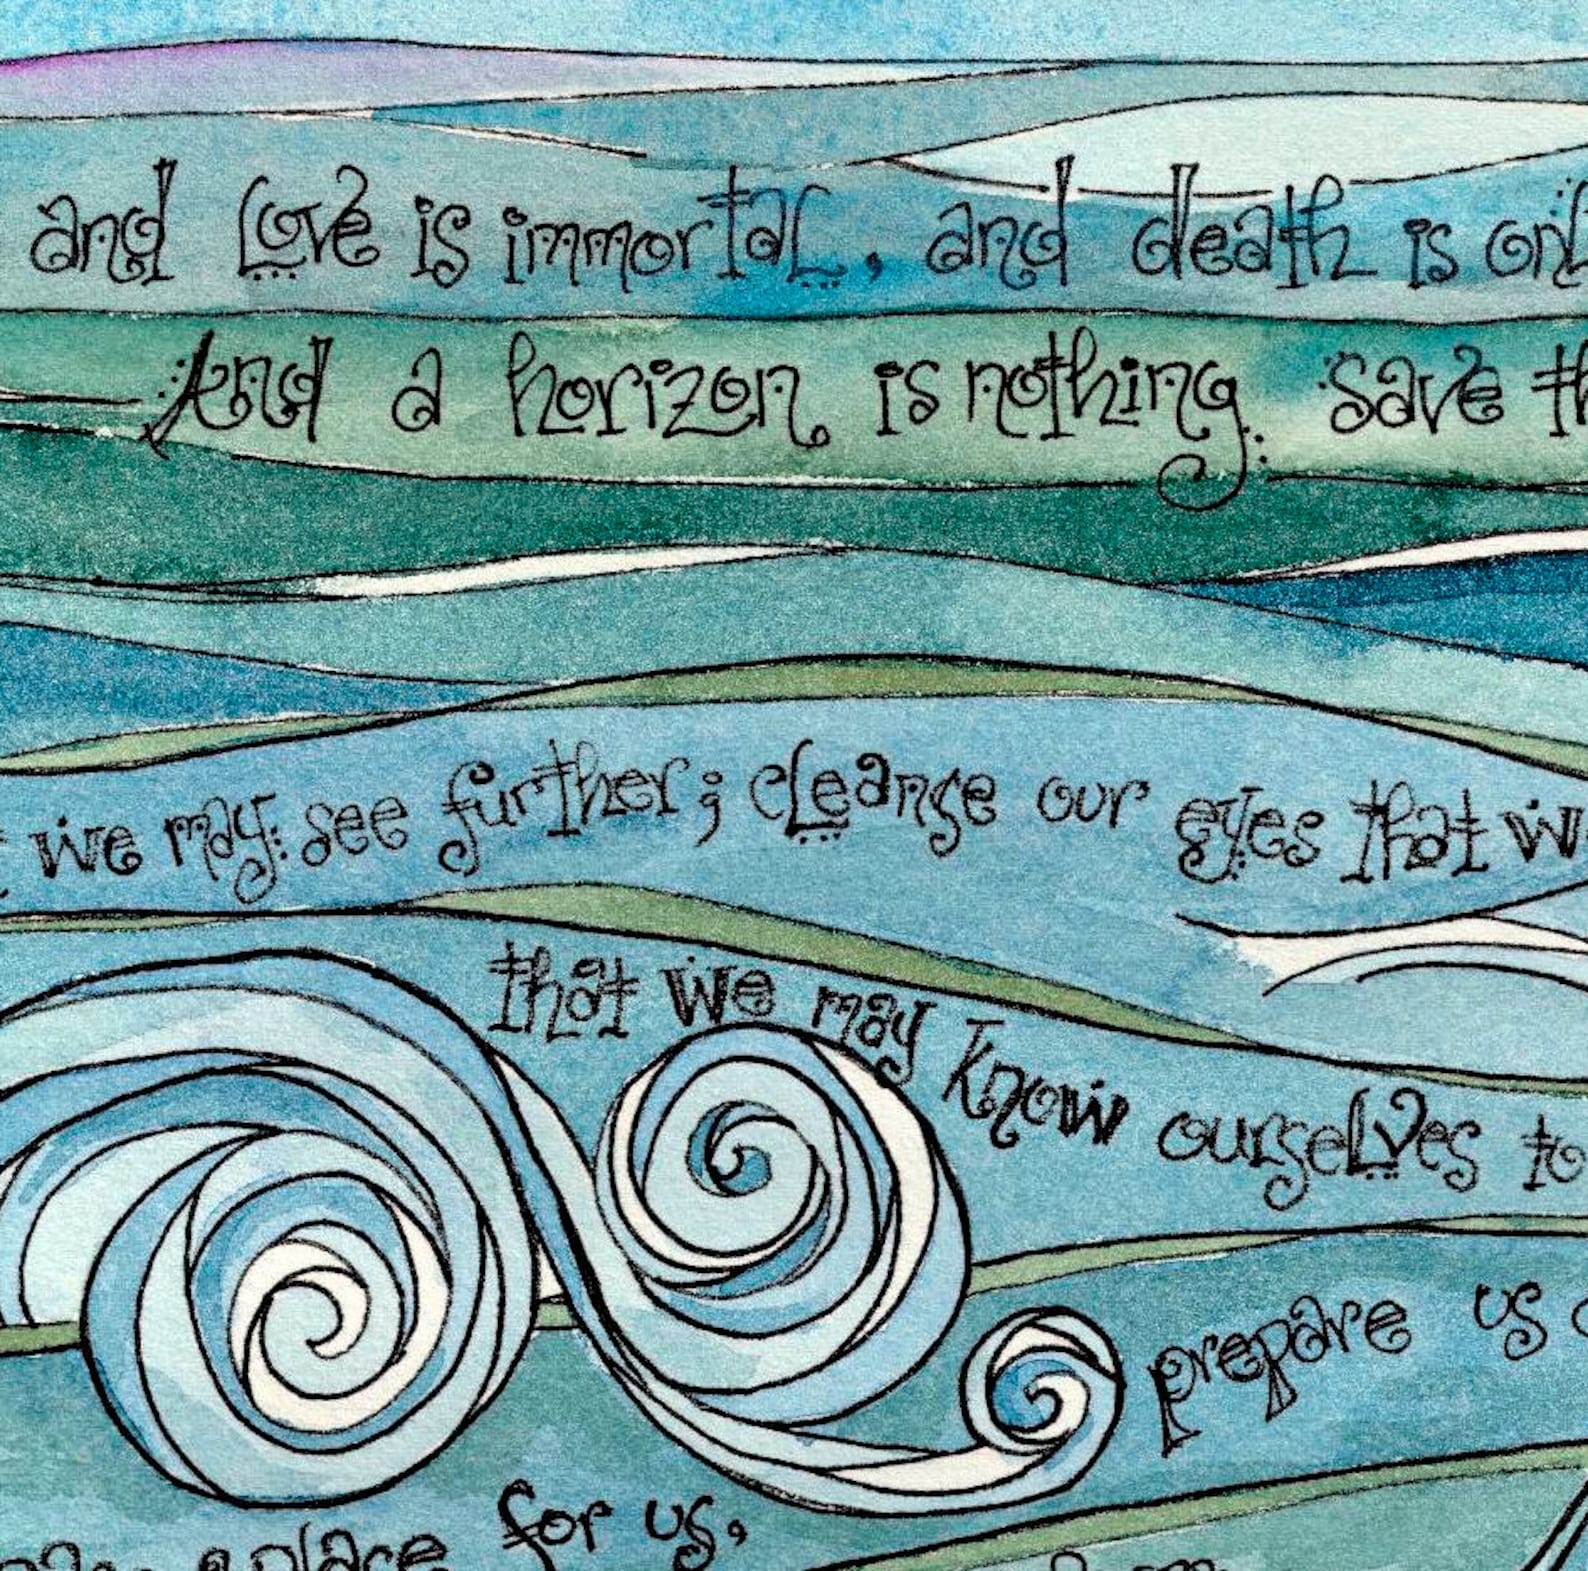 and Love is immortal, and death is
And a horizon is nothing save
we may see further; cleanse our eyes that
that we may know ourselves to
prepare us
place for us,